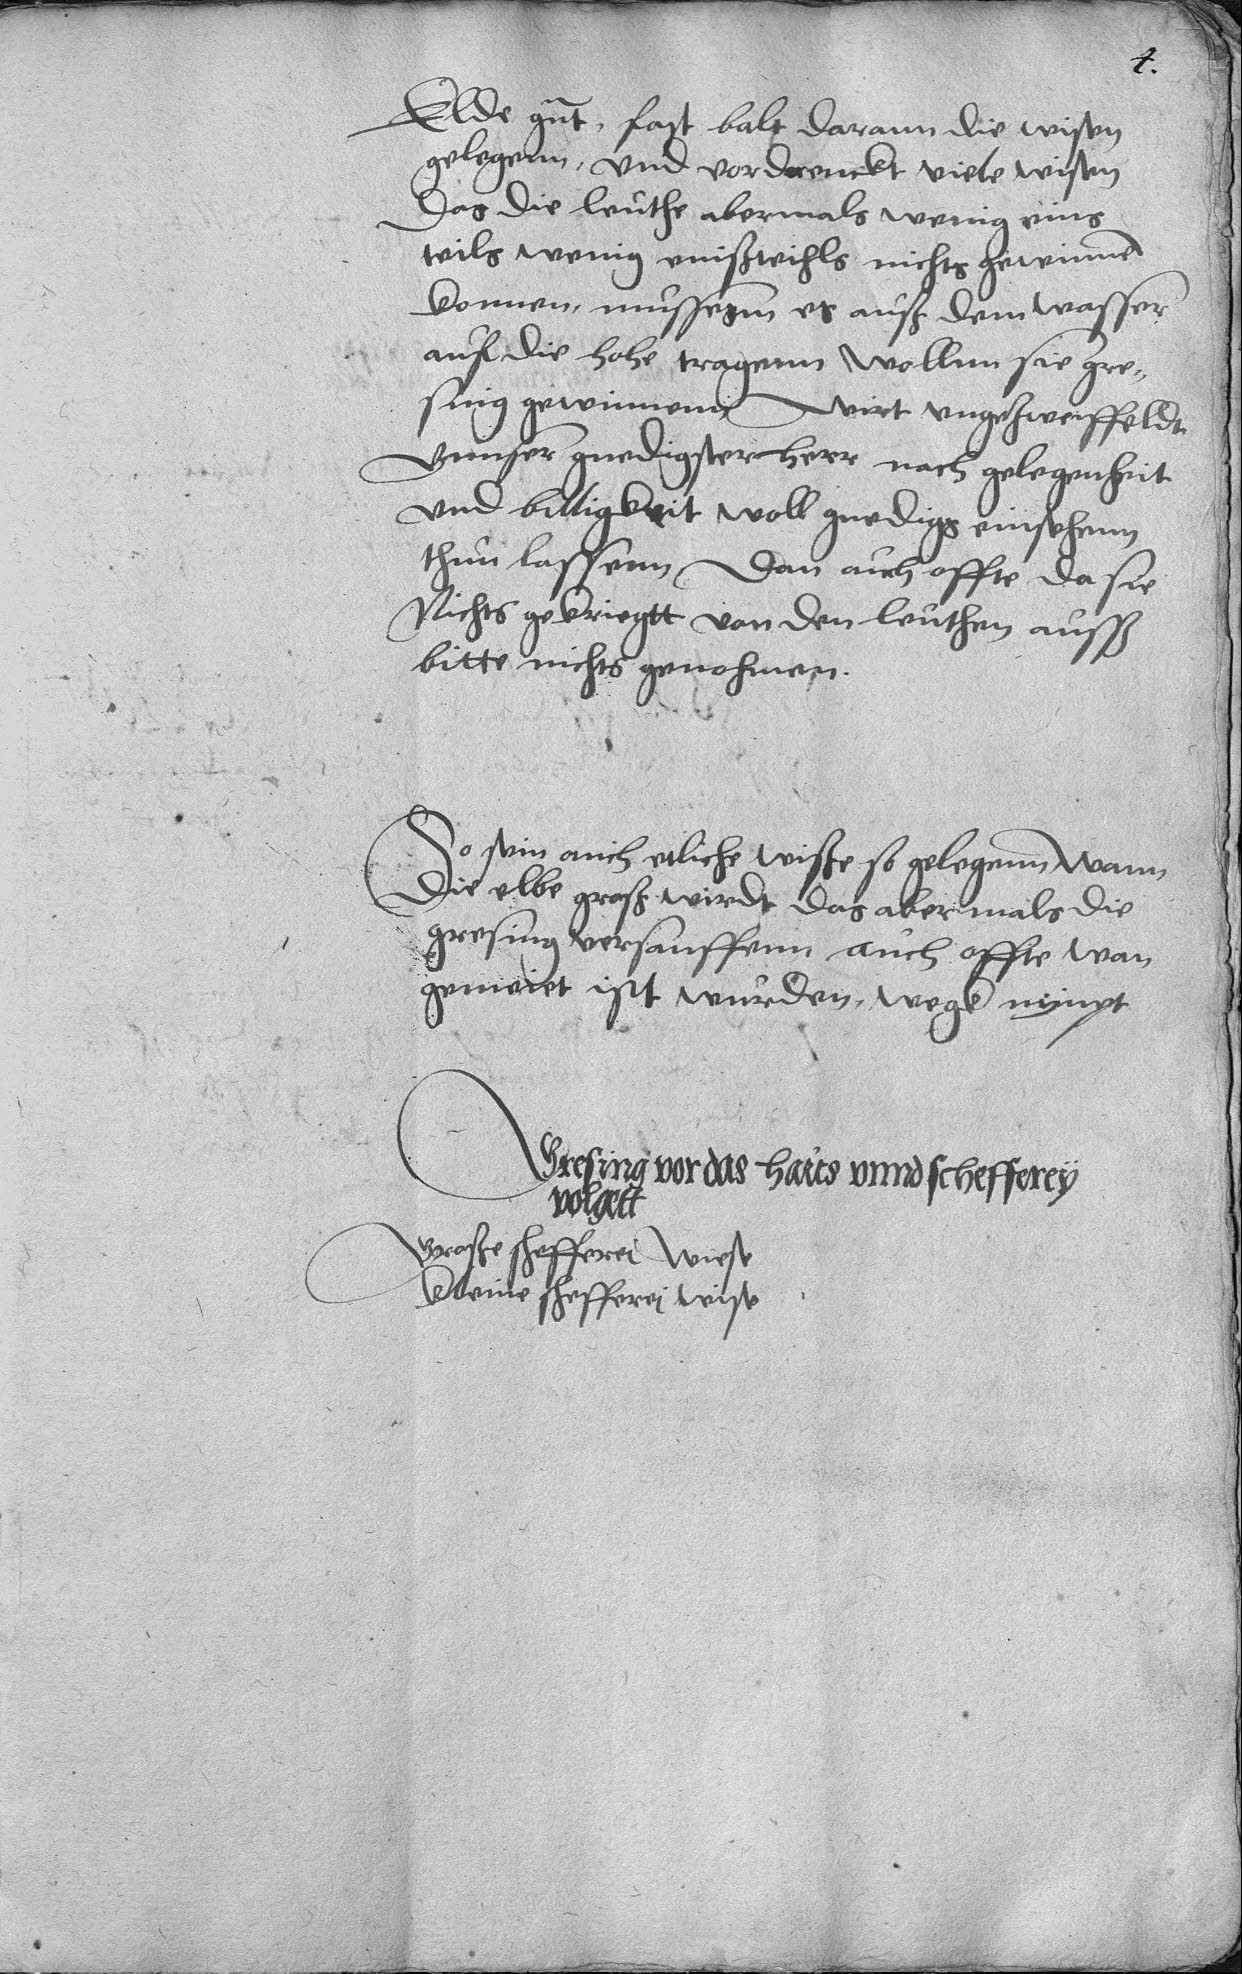 4.
Elde gut, fast balt darann die wisen
gelegenn, vnd vordrenckt viele wisen
Das die leuthe abermals wenig eins
teils wenig enißteihls nichts gewinnen
konnen, mussenn es auß dem wasser
auf die hohe tragenn wollenn sie gre,,
sing gewinnenn, wirt vngezweiffeldt
Vnnser gnedigster herr nach gelegenheit
vnd billigkeit woll gnedigs einsehenn
thun lassenn, Dan auch offte da sie
Nichts gekriegtt von den leuthen auß
bitte nichts genohmen.
So sein auch etliche wiße so gelegenn wann
Die elbe groß wirdt das abermals die
gresing versauffenn auch offte wan
gemeiet ist wurden, wegk nympt
Gresing vor das haus vnnd schefferey
volgett
Große schefferei wiese
kleine schefferei wise